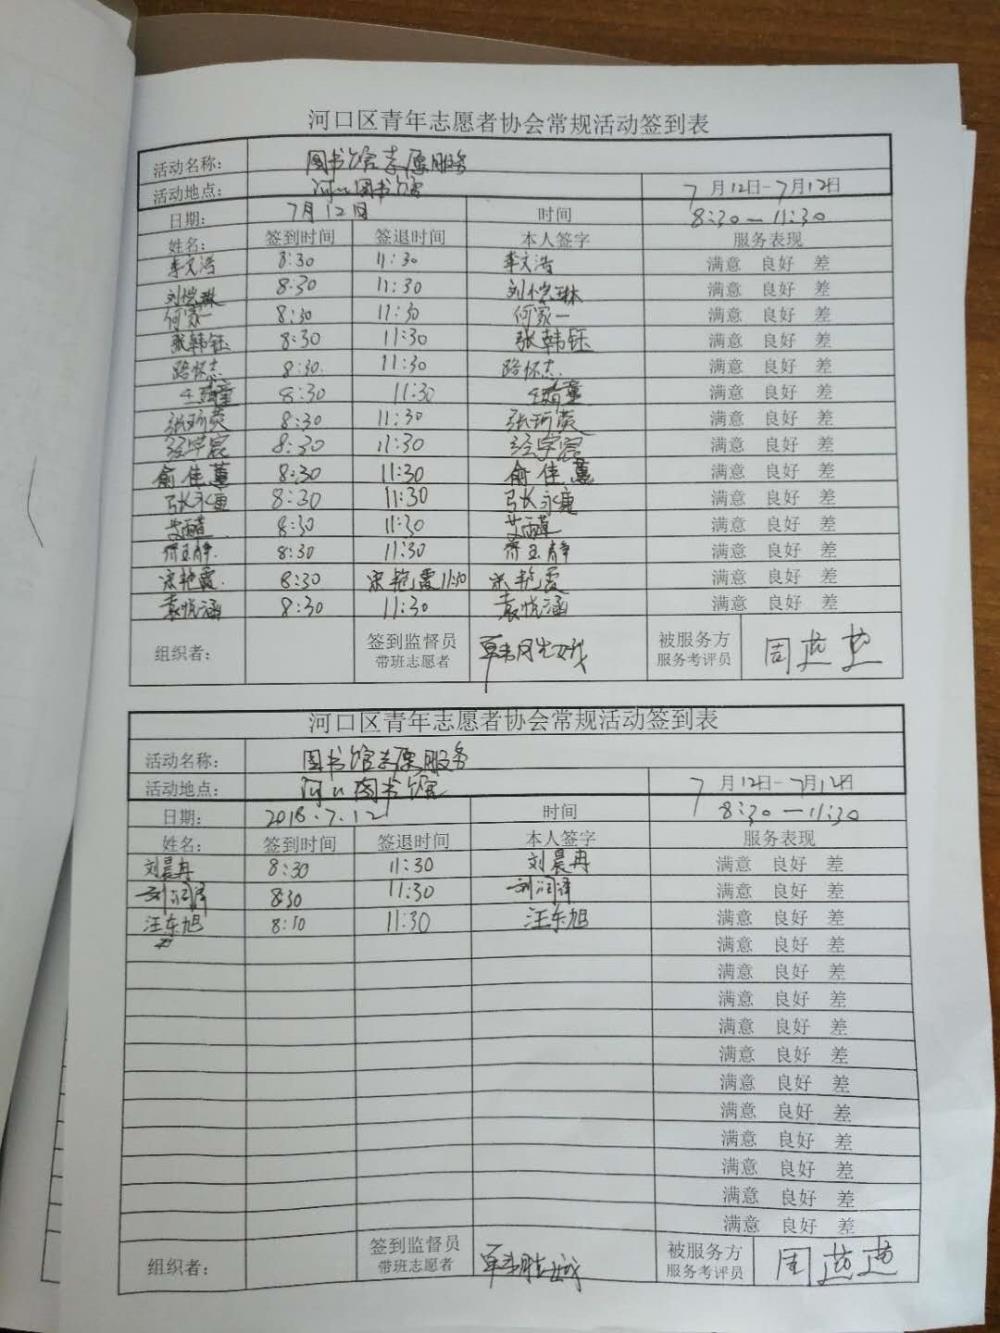 河口区青年志愿者协会常规活动签到表
活动名称： 图书馆志愿服务
活动地点： 河口图书馆 7月12日-7月12日
日期： 7月12日 时间 8:30—11:30
姓名： 签到时间 签退时间 本人签字 服务表现
李文浩 8:30 11:30 李文浩 满意 良好 差
刘恺琳 8:30 11:30 刘恺琳 满意 良好 差
何家一 8:30 11:30 何家一 满意 良好 差
张韩钰 8:30 11:30 张韩钰 满意 良好 差
路怀志 8:30 11:30 路怀志 满意 良好 差
8:30 11:30 满意 良好 差
8:30 11:30 满意 良好 差
8:30 11:30 满意 良好 差
俞佳蕙 8:30 11:30 俞佳蕙 满意 良好 差
张永 8:30 11:30 张永 满意 良好 差
8:30 11:30 满意 良好 差
8:30 11:30 满意 良好 差
宋艳霞 8:30 宋艳霞 11:30 宋艳霞 满意 良好 差
袁悦涵 8:30 11:30 袁悦涵 满意 良好 差
组织者： 签到监督员 带班志愿者 被服务方 服务考评员 周燕燕
河口区青年志愿者协会常规活动签到表
活动名称： 图书馆志愿服务
活动地点： 河口图书馆 7月12日-7月12日
日期： 2018.7.12 时间 8:30—11:30
姓名： 签到时间 签退时间 本人签字 服务表现
刘晨冉 8:30 11:30 刘晨冉 满意 良好 差
刘润泽 8:30 11:30 刘润泽 满意 良好 差
汪东旭 8:10 11:30 汪东旭 满意 良好 差
满意 良好 差
满意 良好 差
满意 良好 差
满意 良好 差
满意 良好 差
满意 良好 差
满意 良好 差
满意 良好 差
满意 良好 差
满意 良好 差
满意 良好 差
组织者： 签到监督员 带班志愿者 被服务方 服务考评员 周燕燕